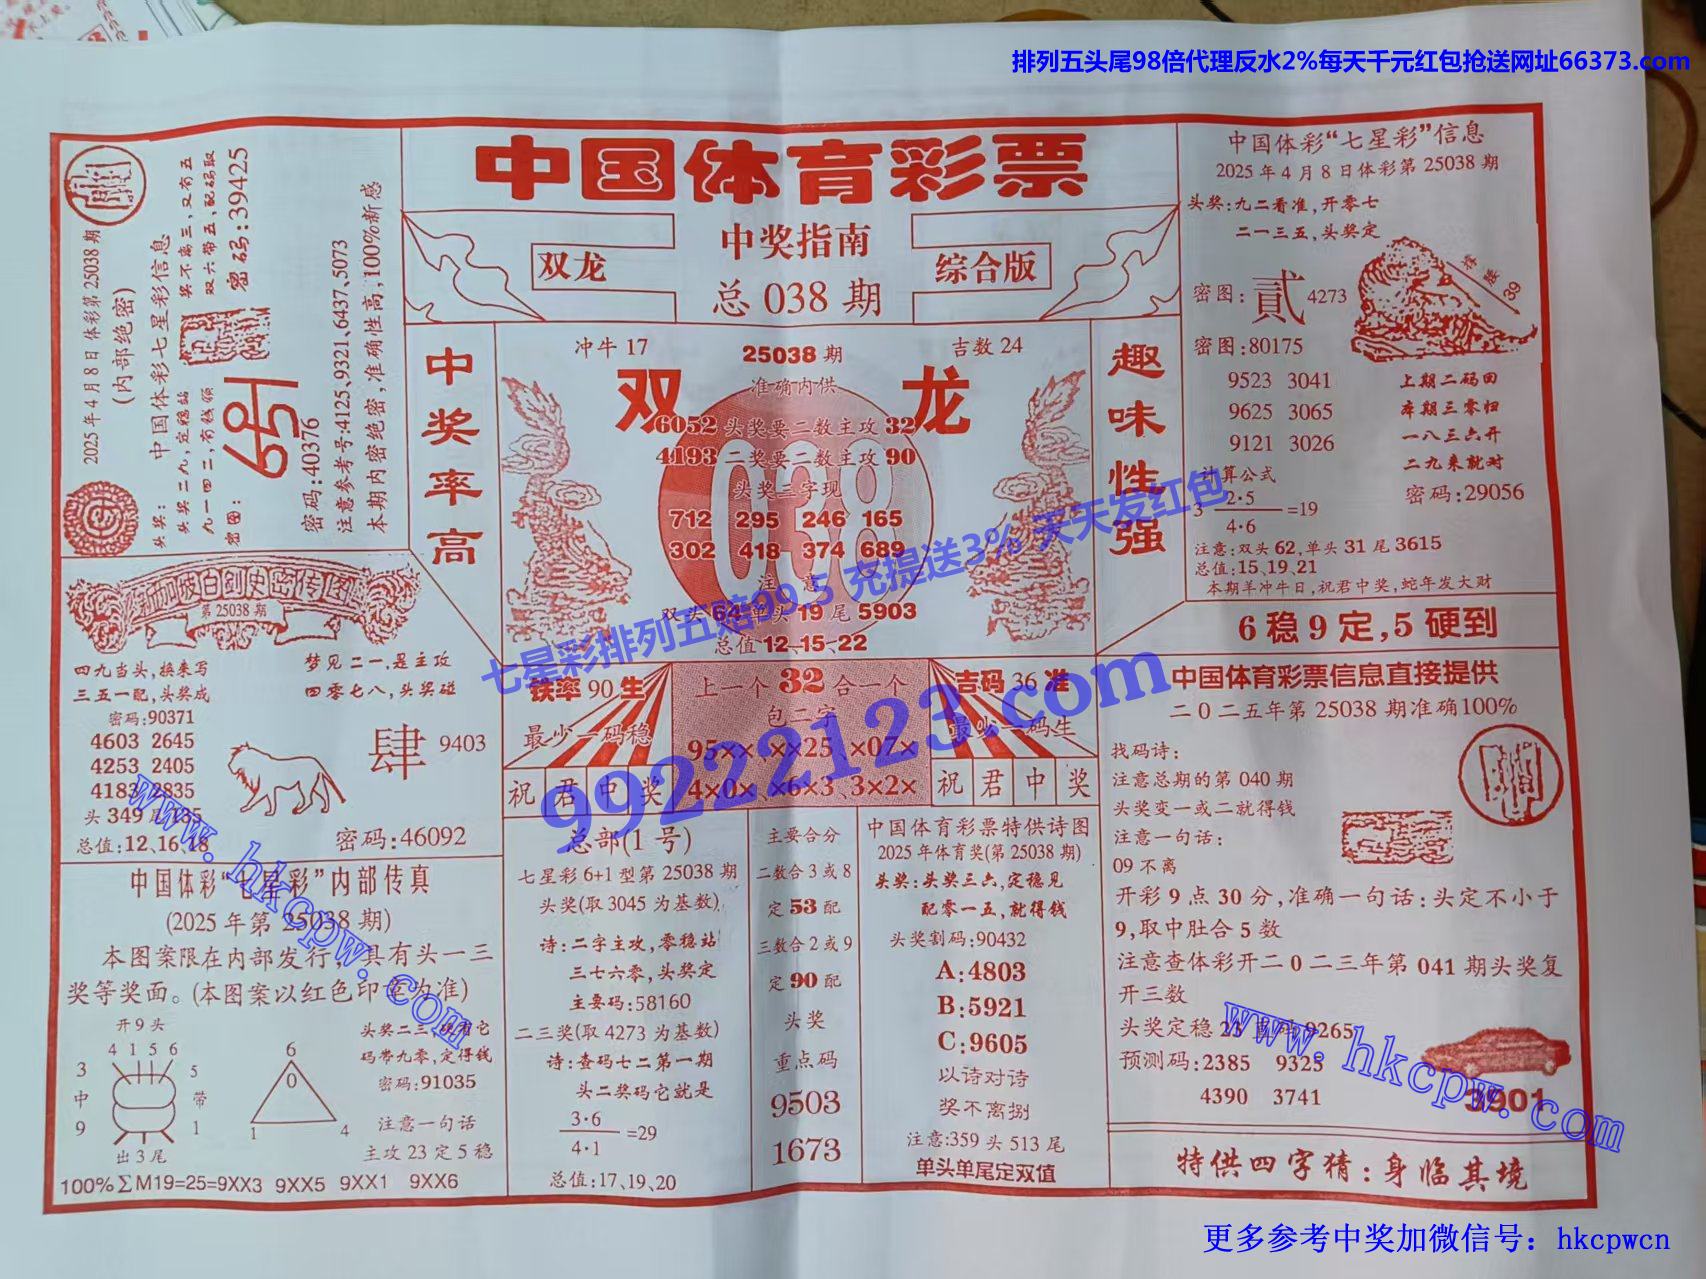 排列五头尾98倍代理反水2%每天千元红包抢送网址66373.com
中国体育彩票
中奖指南
双龙
综合版
总 038 期
2025年4月8日体彩第25038期
(内部绝密)
中国体彩七星彩信息
奖不离三,又有五
双六带五,配码取
密码:39425
头奖:
头奖二九,定稳站
九一四二,有钱领
密图:
密码:40376
注意参考号:4125、9321、6437、5073
本期内密绝密,准确性高,100%新感
中奖率高
趣味性强
冲牛 17
25038 期
吉数 24
准确内供
双 龙
6052 头奖要二数主攻 32
4193 二奖要二数主攻 90
头奖三字现
712 295 246 165
302 418 374 689
注意
双头 64 单头 19 尾 5903
总值 12、15、22
038
铁率 90 生
最少一码稳
上一个 32 合一个
包二字
95××、××25、×07×
4×0×、×6×3、3×2×
吉码 36 准
最少一码生
祝君中奖
祝君中奖
中国体彩“七星彩”信息
2025年4月8日体彩第25038期
头奖:九二看准,开零七
二一三五,头奖定
密图:
貳
4273
39
密图:80175
9523 3041
9625 3065
9121 3026
上期二码回
本期三零归
一八三六开
二九来就对
计算公式
3 2·5
4·6 =19
密码:29056
注意:双头 62,单头 31 尾 3615
总值:15、19、21
本期羊冲牛日,祝君中奖,蛇年发大财
6 稳 9 定,5 硬到
第 25038 期
四九当头,换来写
三五一配,头奖成
梦见二一,是主攻
四零七八,头奖碰
密码:90371
4603 2645
4253 2405
4183 2835
头 349 尾 135
总值:12、16、18
肆
9403
密码:46092
中国体彩“七星彩”内部传真
(2025年第 25038 期)
本图案限在内部发行,具有头一三
奖等奖面。(本图案以红色印章为准)
开9头
4 1 5 6
3
中
9
5
带
1
出3尾
6
0
1
4
码带九零,定得钱
密码:91035
注意一句话
主攻 23 定 5 稳
100%∑M19=25=9XX3 9XX5 9XX1 9XX6
总部(1 号)
七星彩 6+1 型第 25038 期
头奖(取 3045 为基数)
诗:二字主攻,零稳站
三七六零,头奖定
主要码:58160
二三奖(取 4273 为基数)
诗:查码七二第一期
头二奖码它就是
3·6
4·1 =29
总值:17、19、20
主要合分
二数合 3 或 8
定 53 配
三数合 2 或 9
定 90 配
头奖
重点码
9503
1673
中国体育彩票特供诗图
2025年体育奖(第 25038 期)
头奖:头奖三六,定稳见
配零一五,就得钱
头奖割码:90432
A:4803
B:5921
C:9605
以诗对诗
奖不离捌
注意:359 头 513 尾
单头单尾定双值
中国体育彩票信息直接提供
二0二五年第 25038 期准确100%
找码诗:
注意总期的第 040 期
头奖变一或二就得钱
注意一句话:
09 不离
开彩 9 点 30 分,准确一句话:头定不小于
9,取中肚合 5 数
注意查体彩开二0二三年第 041 期头奖复
开三数
预测码:2385 9325
4390 3741
3901
特供四字猜:身临其境
七星彩排列五赔99.5 充提送3% 天天发红包
99222123.com
www.hkcpw.com
www.hkcpw.com
更多参考中奖加微信号：hkcpwcn